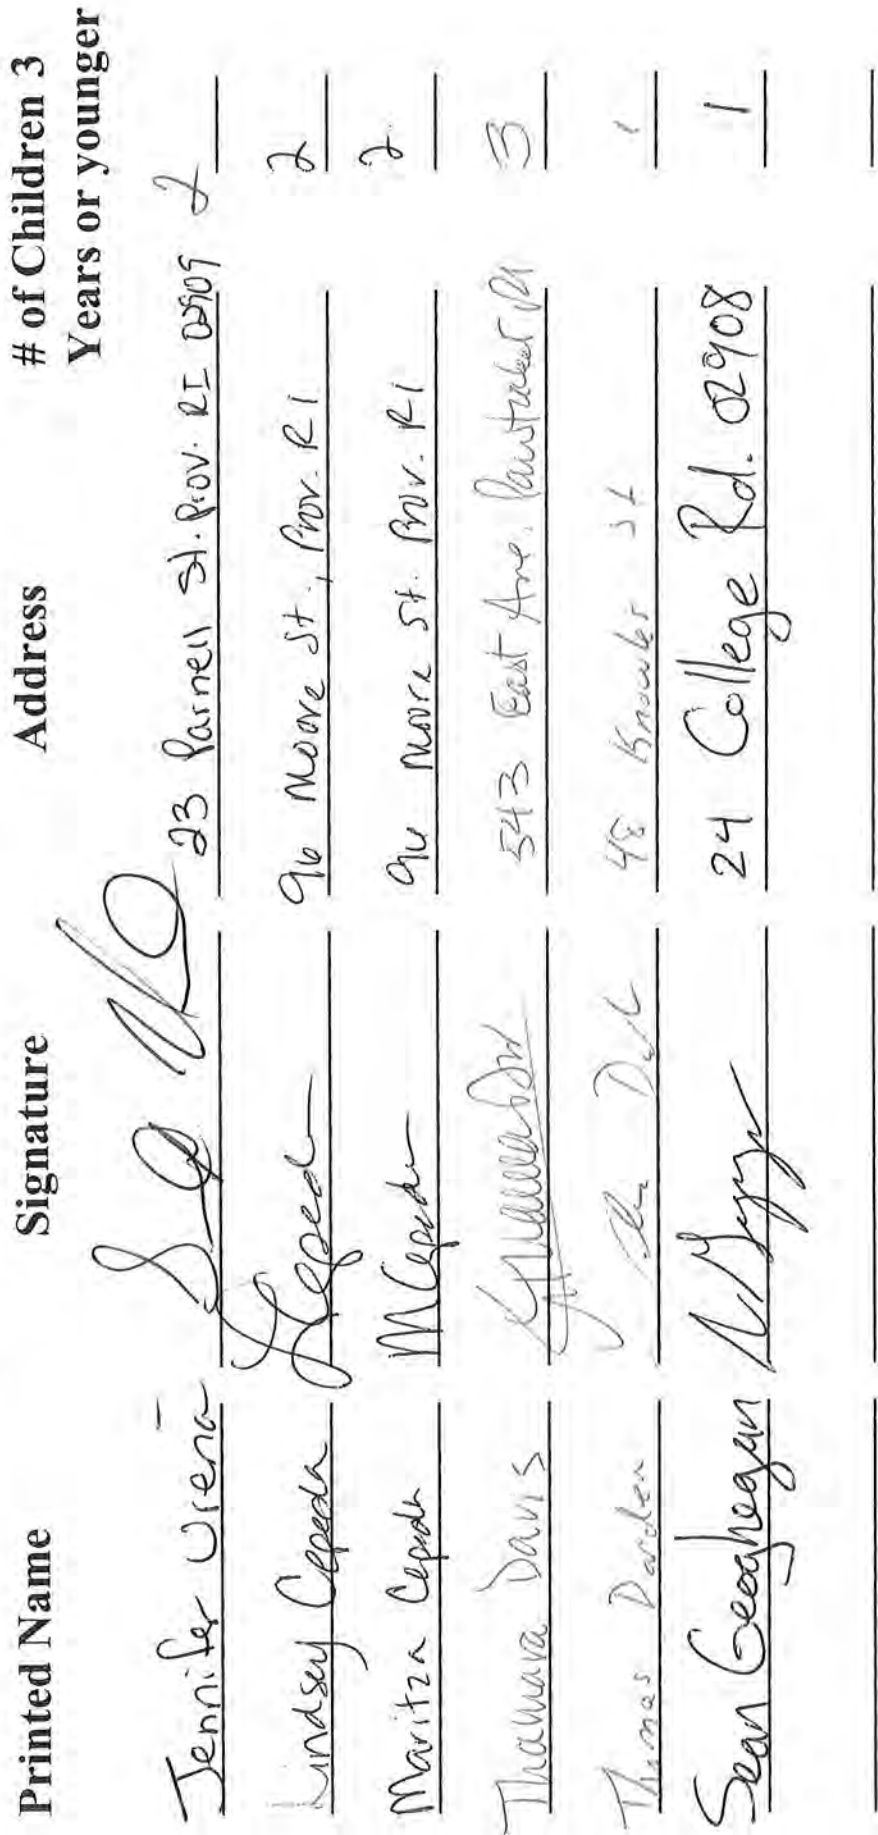 Printed Name Signature Address # of Children 3 Years or younger
Jennifer Urena 23 Parnell St. Prov. RI 02909 2
Lindsey Cepeda LCepeda 96 Moore St., Prov. RI 2
Maritza Cepeda MCepeda 96 Moore St. Prov. RI 2
Thamara Davis 543 East Ave. Pawtucket RI 3
Thomas Darden 48 Knowles St 1
Sean Geoghegan 24 College Rd. 02908 1